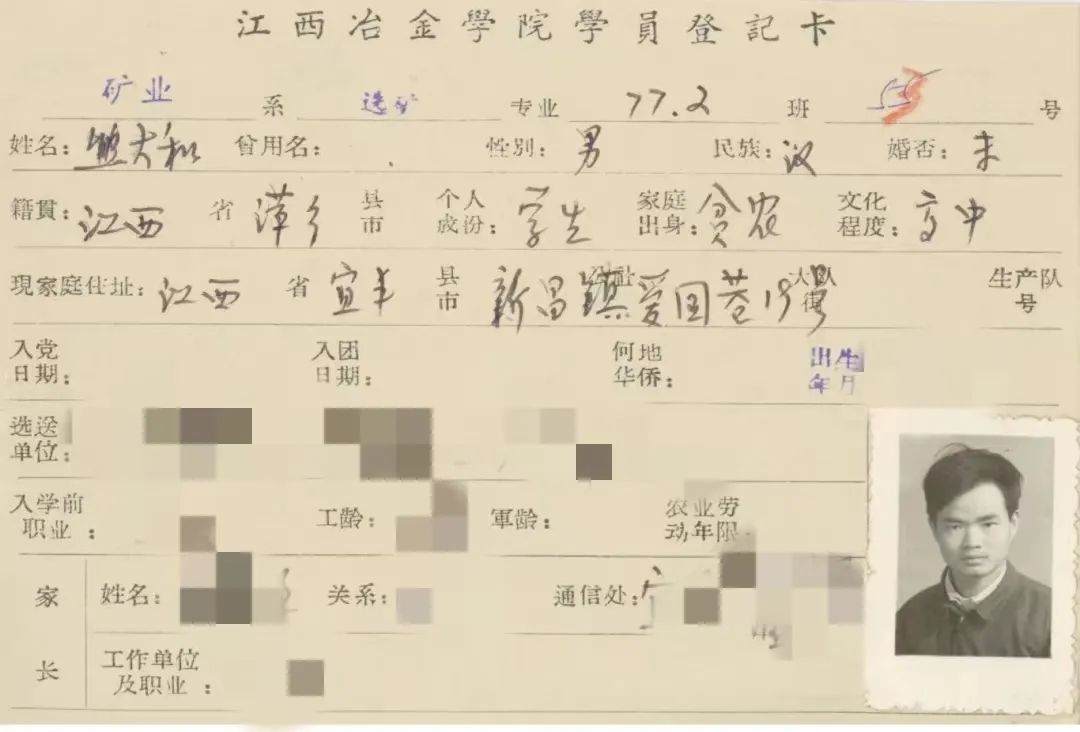 江西冶金學院學員登記卡
矿业 系 选矿 专业 77.2 班 号
姓名: 大和 曾用名: 性別: 男 民族: 汉 婚否: 未
籍貫: 江西 省 萍乡 县市 个人成份: 学生 家庭出身: 贫农 文化程度: 高中
現家庭住址: 江西 省 宜丰 县市 新昌镇爱国巷19号 公社 大队街 生产队号
入党日期: 入团日期: 何地华侨: 出生年月
选送单位:
入学前职业: 工龄: 軍龄: 农业劳动年限
家长 姓名: 关系: 通信处:
工作单位及职业: